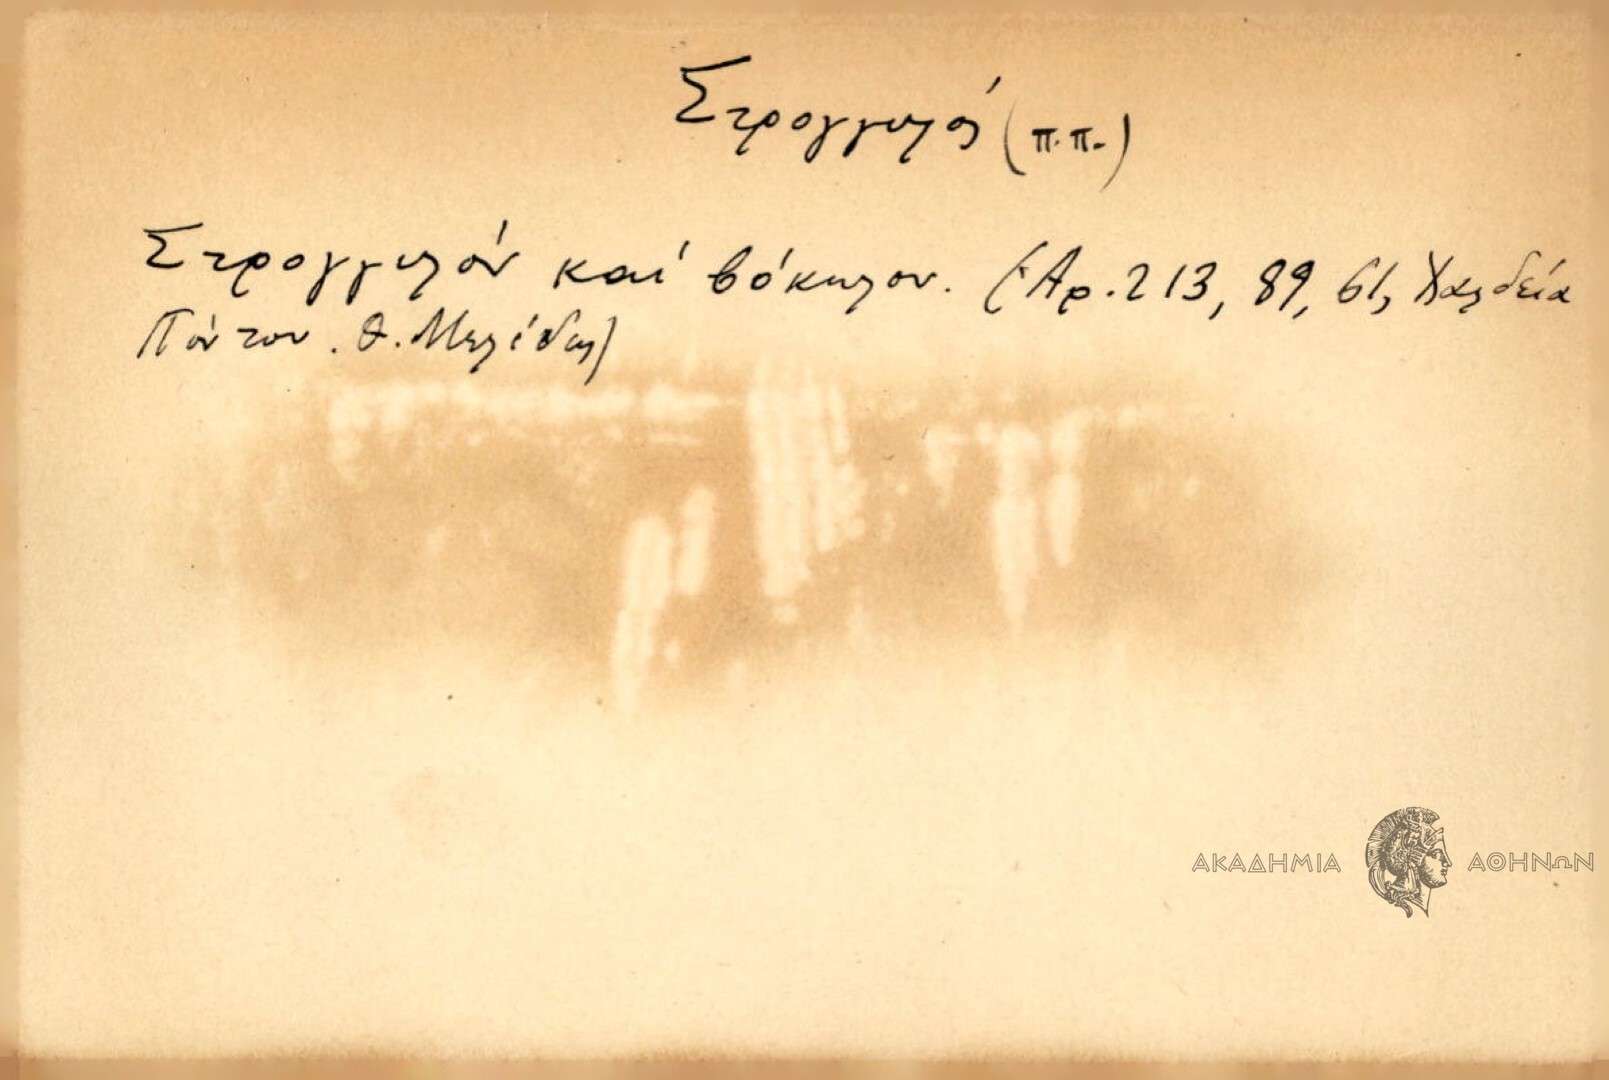 Στρογγυλός (π.π.)
Στρογγυλόν καί βόκυλον. (Ἀρ. 213, 89, 61, Χαλδεία
Πόντου. Θ. Μελίδης)
ΑΚΑΔΗΜΙΑ ΑΘΗΝΩΝ